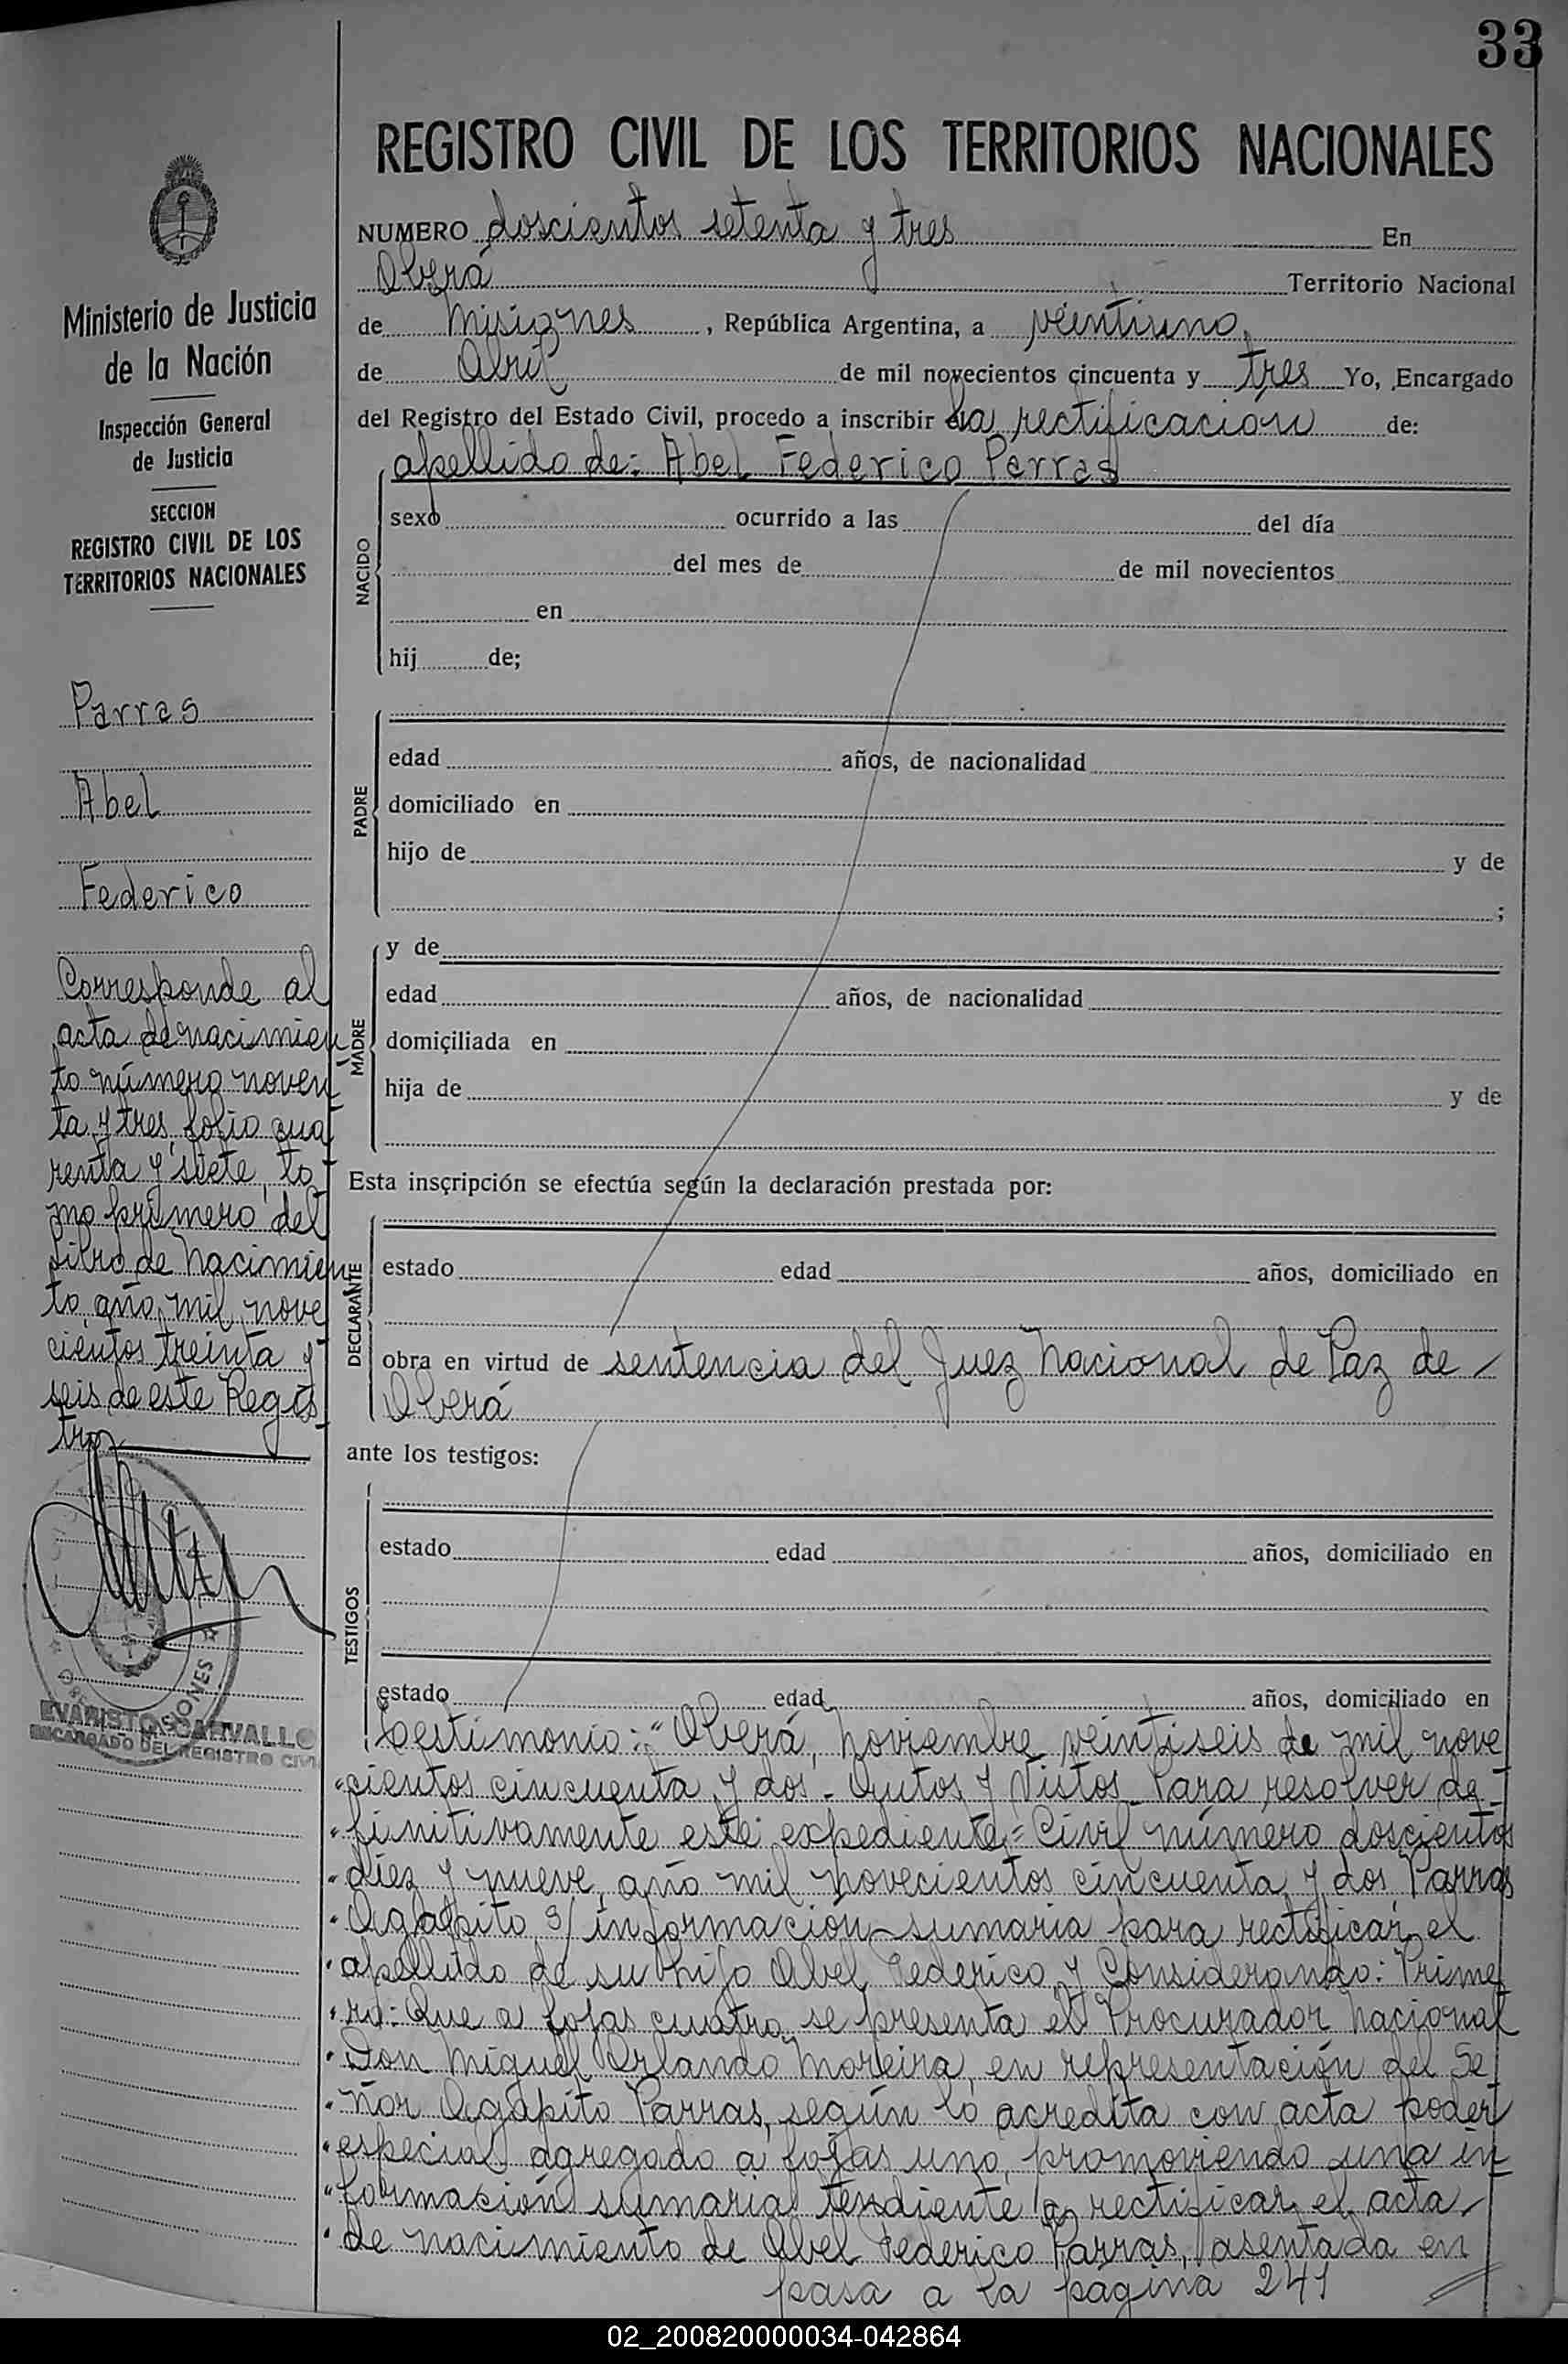 33
REGISTRO CIVIL DE LOS TERRITORIOS NACIONALES
Ministerio de Justicia
de la Nación
Inspección General
de Justicia
SECCION
REGISTRO CIVIL DE LOS
TERRITORIOS NACIONALES
Parras
Abel
Federico
Corresponde al
acta de nacimien
to número noven
ta y tres, folio cua
renta y siete, to-
mo primero del
Libro de Nacimien
to año mil nove
cientos treinta y
seis de este Regis
tro
EVARISTO CARVALLO
ENCARGADO DEL REGISTRO CIVIL
NUMERO doscientos setenta y tres En
Oberá Territorio Nacional
de Misiones, República Argentina, a veintiuno
de Abril de mil novecientos cincuenta y tres Yo, Encargado
del Registro del Estado Civil, procedo a inscribir la rectificación de:
apellido de: Abel Federico Parras
NACIDO
sexo ocurrido a las del día
del mes de de mil novecientos
en
hij de;
PADRE
edad años, de nacionalidad
domiciliado en
hijo de y de
;
MADRE
y de
edad años, de nacionalidad
domiciliada en
hija de y de
Esta inscripción se efectúa según la declaración prestada por:
DECLARANTE
estado edad años, domiciliado en
obra en virtud de sentencia del Juez Nacional de Paz de
Oberá
ante los testigos:
TESTIGOS
estado edad años, domiciliado en
estado edad años, domiciliado en
Testimonio: "Oberá, Noviembre veintiseis de mil nove
"cientos cincuenta y dos - Autos y Vistos - Para resolver de-
"finitivamente este expediente = Civil número doscientos
"diez y nueve, año mil novecientos cincuenta y dos, Parras
"Agapito s/ información sumaria para rectificar el
"apellido de su hijo Abel Federico, y Considerando: Prime
"ro: Que a fojas cuatro, se presenta el Procurador Nacional
"Don Miguel Orlando Moreira, en representación del Se
"ñor Agapito Parras, según lo acredita con acta poder
"especial agregado a fojas uno, promoviendo una in
"formación sumaria tendiente a rectificar el acta
"de nacimiento de Abel Federico Parras, asentada en
pasa a la página 241
02_200820000034-042864